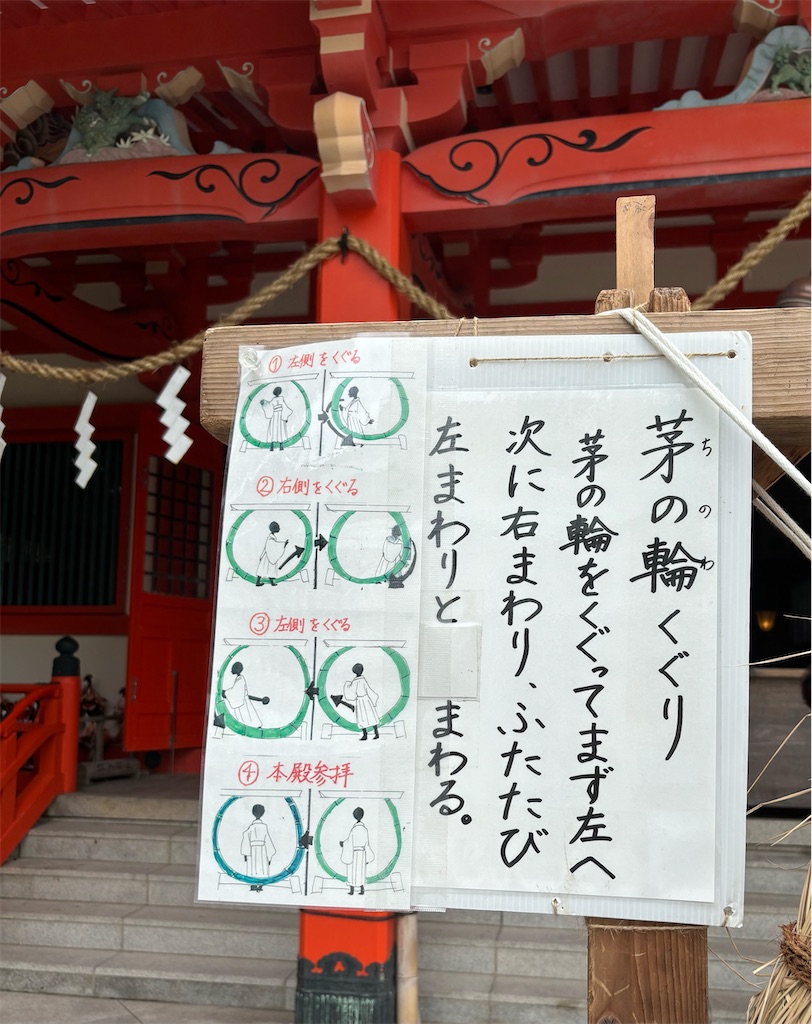 茅の輪くぐり
ちのわ
茅の輪をくぐってまず左へ
次に右まわり、ふたたび
左まわりと まわる。
①左側をくぐる
②右側をくぐる
③左側をくぐる
④本殿参拝